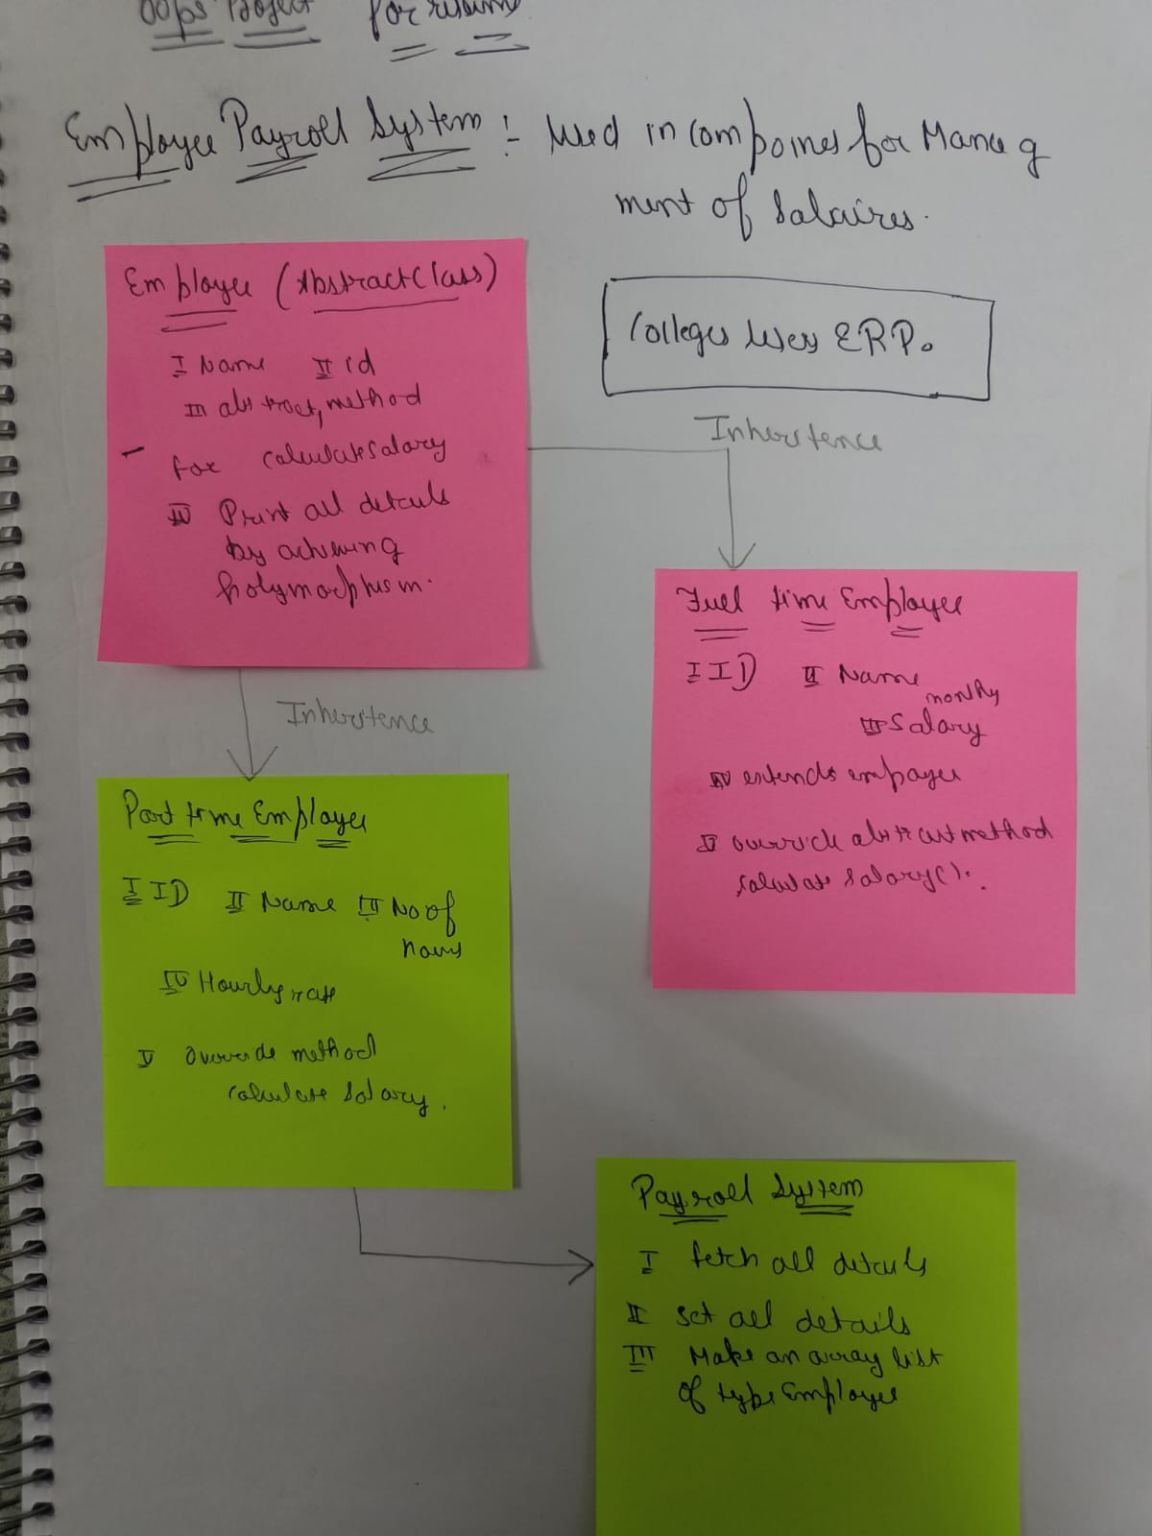 Oops Project for resume
Employee Payroll System :- Used in compaines for Manag
ment of Salaires.
Employee (Abstract Class)
I Name II id
III abstract method
- for calculate salary
IV Print all details
by achieving
Polymorphism.
Colleges uses ERP.
Inheritence
Full time Employee
I ID II Name
monthly
III Salary
IV extends empoyee
V override abstract method
calculate salary().
Inheritence
Part time Employee
I ID II Name III No of
hours
IV Hourly rate
V Override method
calculate salary.
Payroll System
I fetch all details
II set all details
III Make an array list
of type Employee